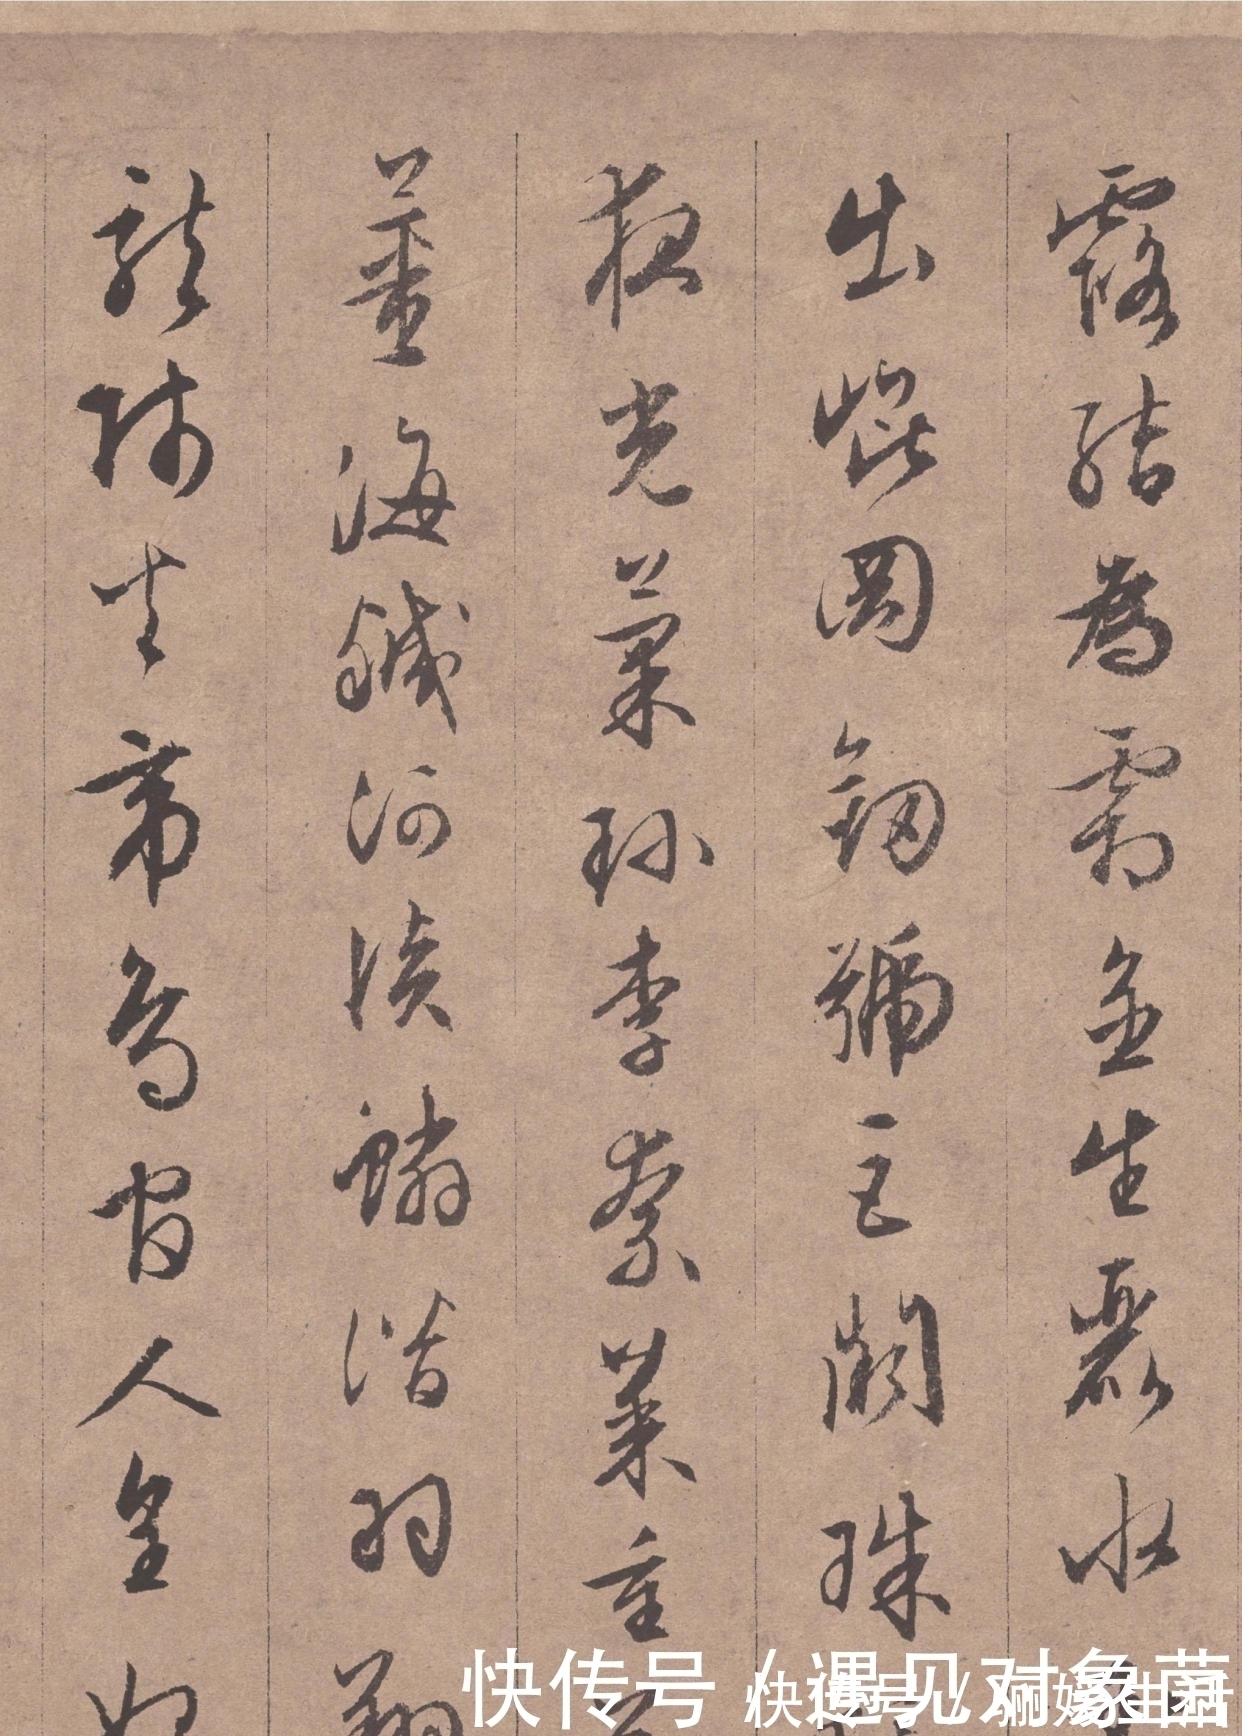 露結為霜金生麗水
出崐岡劒號巨闕珠
夜光菓珎李柰菜重
薑海鹹河淡鱗潛羽翔
龍師火帝鳥官人皇始
快传号 / 遇见对象菌
快传号 /